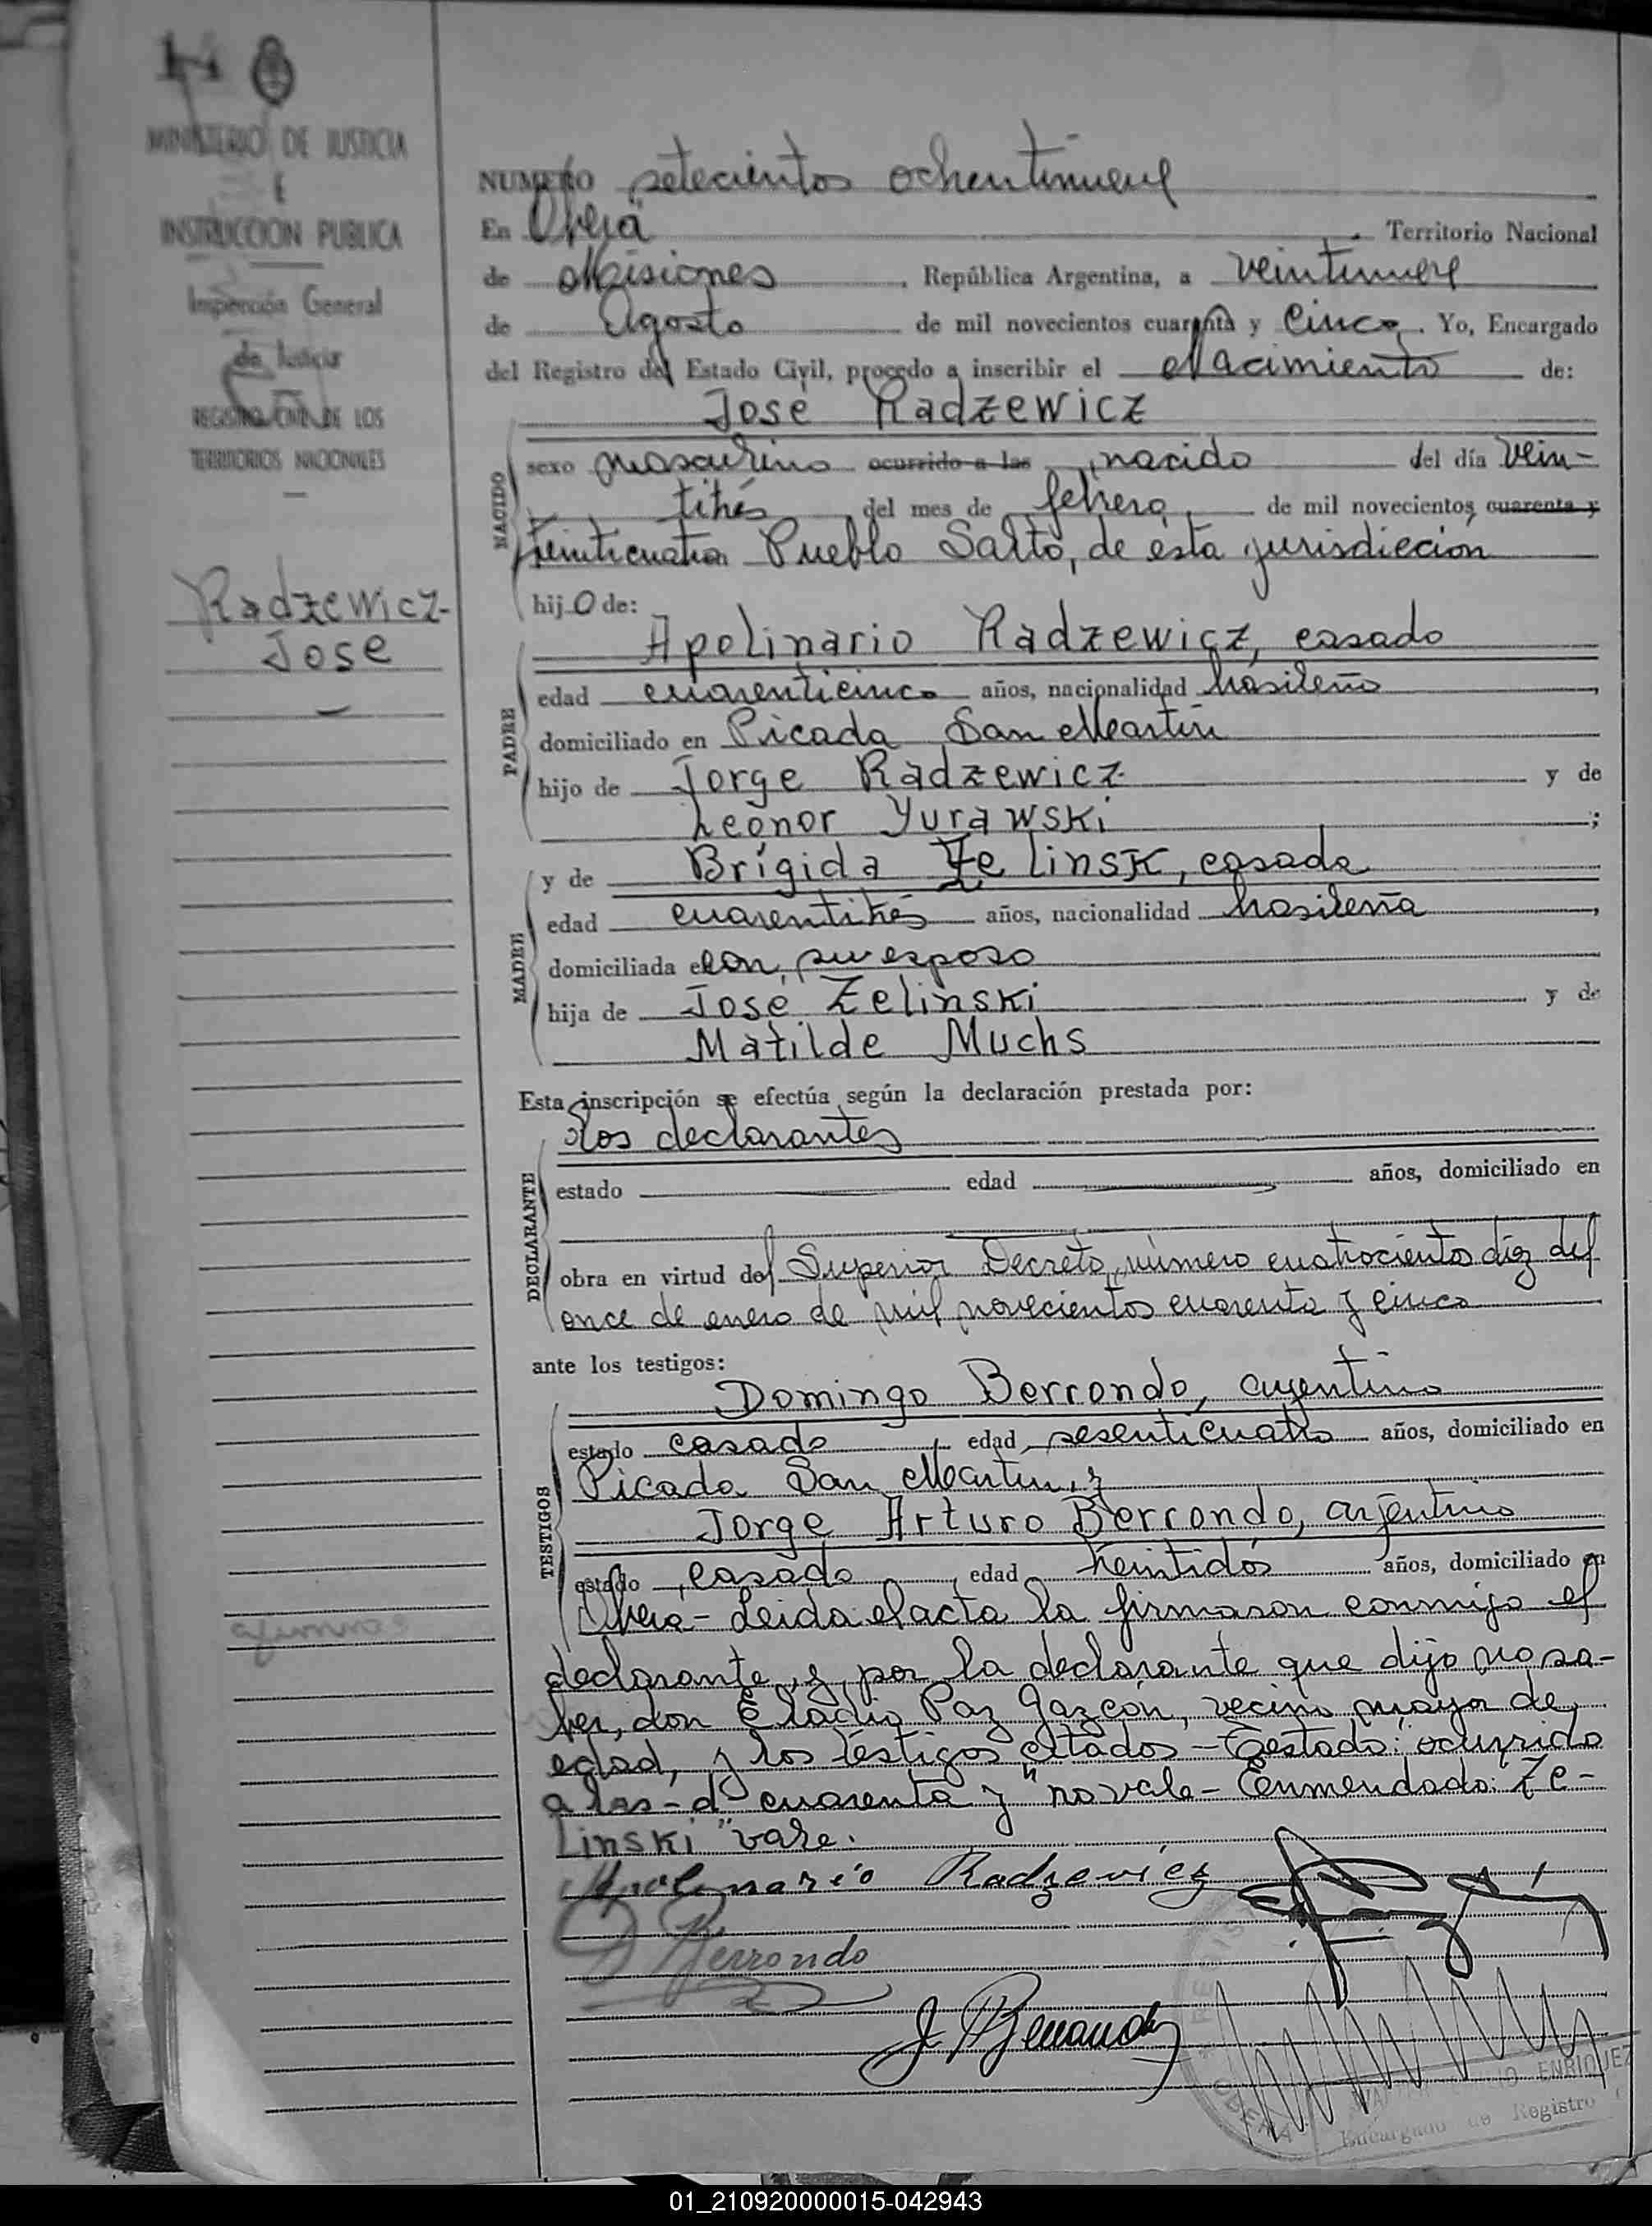 MINISTERIO DE JUSTICIA
E
INSTRUCCION PUBLICA
Inspección General
de Justicia
REGISTRO CIVIL DE LOS
TERRITORIOS NACIONALES
Radzewicz-
Jose
NUMERO setecientos ochentinueve
En Oberá Territorio Nacional
de Misiones, República Argentina, a veintinueve
de Agosto de mil novecientos cuarenta y cinco. Yo, Encargado
del Registro del Estado Civil, procedo a inscribir el Nacimiento de:
José Radzewicz
NACIDO
sexo masculino ocurrido a las, nacido del día vein-
titrés del mes de febrero de mil novecientos cuarenta y
treinticuatro Pueblo Salto, de ésta jurisdicción
hijo de:
Apolinario Radzewicz, casado
PADRE
edad cuarenticinco años, nacionalidad brasileño,
domiciliado en Picada San Martín
hijo de Jorge Radzewicz y de
Leonor Yurawski;
y de Brígida Zelinsk, casada
MADRE
edad cuarentitrés años, nacionalidad brasileña,
domiciliada con su esposo
hija de José Zelinski y de
Matilde Muchs
Esta inscripción se efectúa según la declaración prestada por:
los declarantes
DECLARANTE
estado edad años, domiciliado en
obra en virtud del Superior Decreto número cuatrociento diez del
once de enero de mil novecientos cuarenta y cinco
ante los testigos:
Domingo Berrondo, argentino
TESTIGOS
estado casado, edad sesenticuatro años, domiciliado en
Picada San Martín, y
Jorge Arturo Berrondo, argentino
estado casado, edad treintidós años, domiciliado en
Oberá- Leida el acta la firmaron conmigo el
declarante y por la declarante que dijo no sa-
ber, don Eladio Paz Gazcón, vecino mayor de
edad, y los testigos citados - Testado: ocurrido
a las - d cuarenta y" no vale - Enmendado: "Ze-
linski" vale.
Apolinario Radzeviez
D Berrondo
J A Berrondo
ENRIQUEZ
Encargado de Registro
01_210920000015-042943